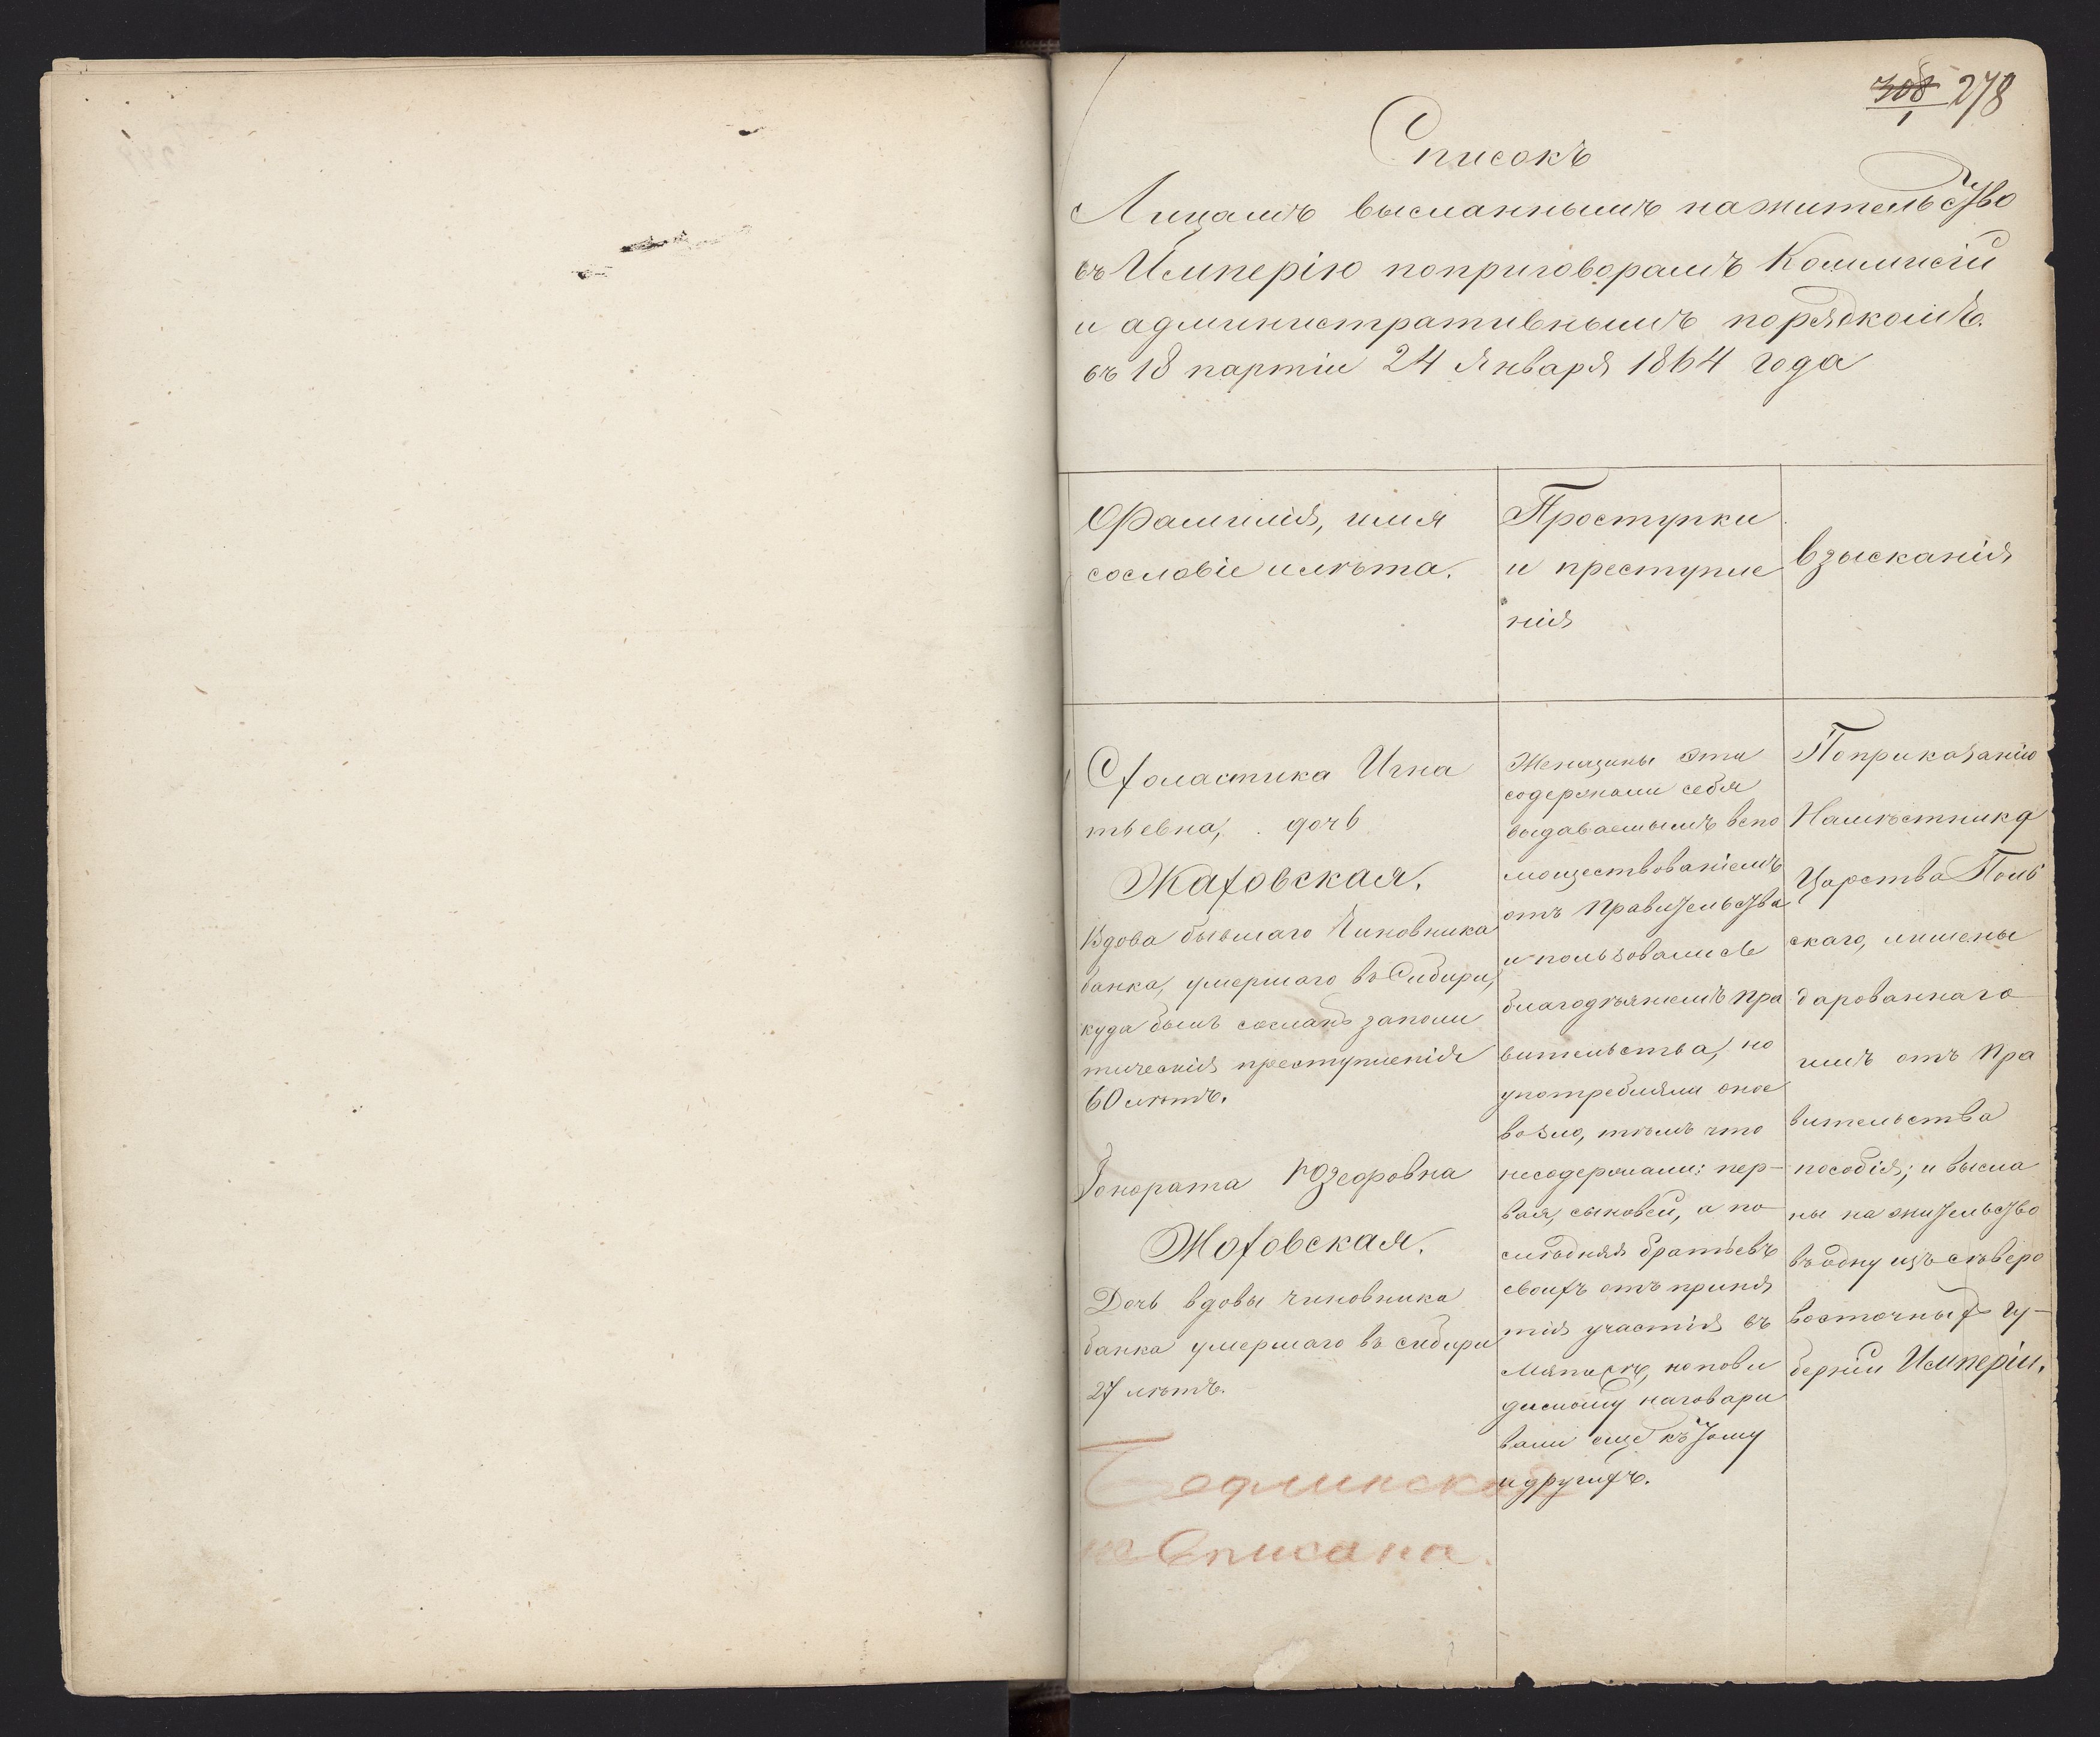 308 278
1
Списокъ
Лицамъ высланнымъ на жительство
въ Имперію по приговорамъ Коммисіи
и административнымъ порядкомъ.
въ 18 партіи 24 Января 1864 года
Фамилія, имя
сословіе и лѣта.
Проступки
и преступле
нія
Взысканія
Схоластика Игна
тьевна, дочь
Жаховская.
Вдова бывшаго Чиновника
банка, умершаго въ Сибири,
куда былъ сосланъ за поли
тическія преступленія
60 лѣтъ.
Гонората Юзефовна
Жоховская.
Дочь вдовы чиновника
банка умершаго въ сибири
27 лѣтъ.
не вписана.
Женщины эти
содержали себя
выдаваемымъ вспо
моществованіемъ
отъ Правительства
и пользовались
благодѣяніемъ Пра
вительства, но
употребляли оное
во зло, тѣмъ что
несодержали: пер-
вая, сыновей, а по-
слѣдняя братьевъ
своихъ отъ приня
тія участія въ
Мятежѣ, но пови
димому наговари
вали еще къ тому
и другихъ.
По приказанію
Намѣстника
Царства Поль
скаго, лишены
дарованнаго
имъ отъ Пра
вительства
пособія; и высла
ны на жительство
въ одну изъ сѣверо
восточныхъ гу-
берній Имперіи.